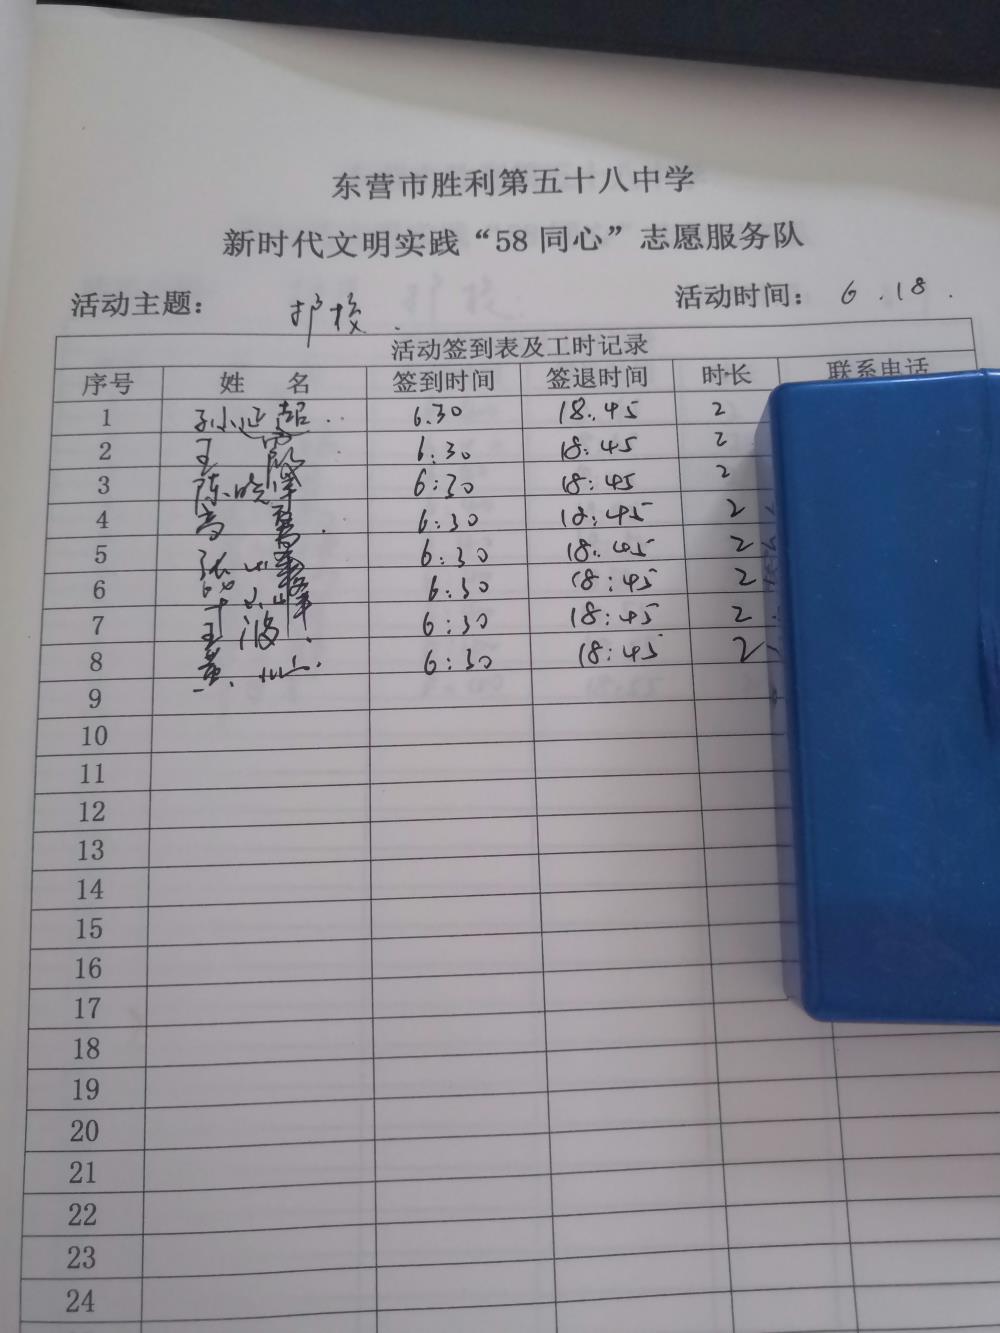 东营市胜利第五十八中学
新时代文明实践“58 同心”志愿服务队
活动主题： 护校. 活动时间： 6.18.
活动签到表及工时记录
序号 姓 名 签到时间 签退时间 时长 联系电话
1 孙延超 6.30 18.45 2
2 王 6:30 18:45 2
3 陈晓泽 6:30 18:45 2
4 高 6:30 18:45 2
5 张 6:30 18:45 2
6 6:30 18:45 2
7 王波 6:30 18:45 2
8 黄 6:30 18:45 2
9
10
11
12
13
14
15
16
17
18
19
20
21
22
23
24